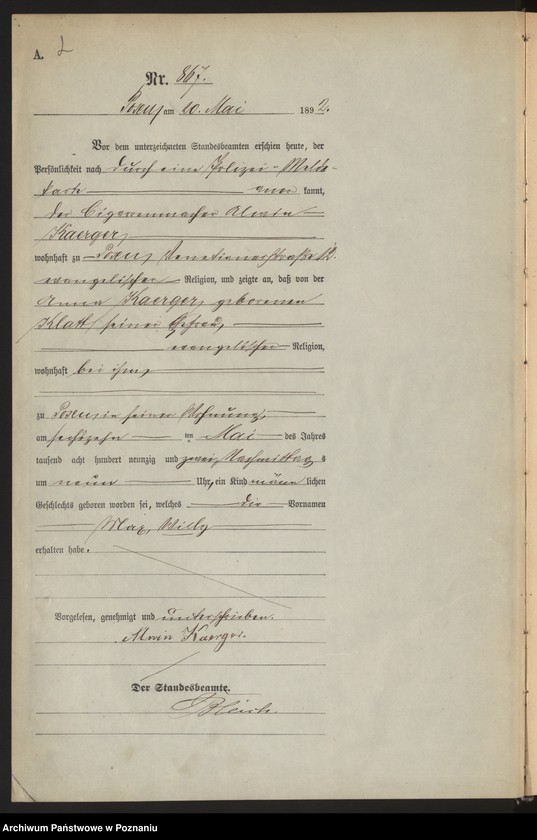 A.
Nr. 867.
Posen am 20. Mai 1892.
Vor dem unterzeichneten Standesbeamten erschien heute, der
Persönlichkeit nach durch eine Polizei-Melde-
karte aner kannt,
der Cigarrenmacher Alwin
Kaerger,
wohnhaft zu Posen, Venetianerstraße
evangelischer Religion, und zeigte an, daß von der
Anna Kaerger, geborenen
Klatt, seiner Ehefrau,
evangelischer Religion,
wohnhaft bei ihm,
zu Posen in seiner Wohnung,
am sechszehn ten Mai des Jahres
tausend acht hundert neunzig und zwei, Nachmittag s
um neun Uhr, ein Kind männ lichen
Geschlechts geboren worden sei, welches die Vornamen
Max, Willy
erhalten habe.
Vorgelesen, genehmigt und unterschrieben.
Alwin Kaerger.
Der Standesbeamte.
Archiwum Państwowe w Poznaniu